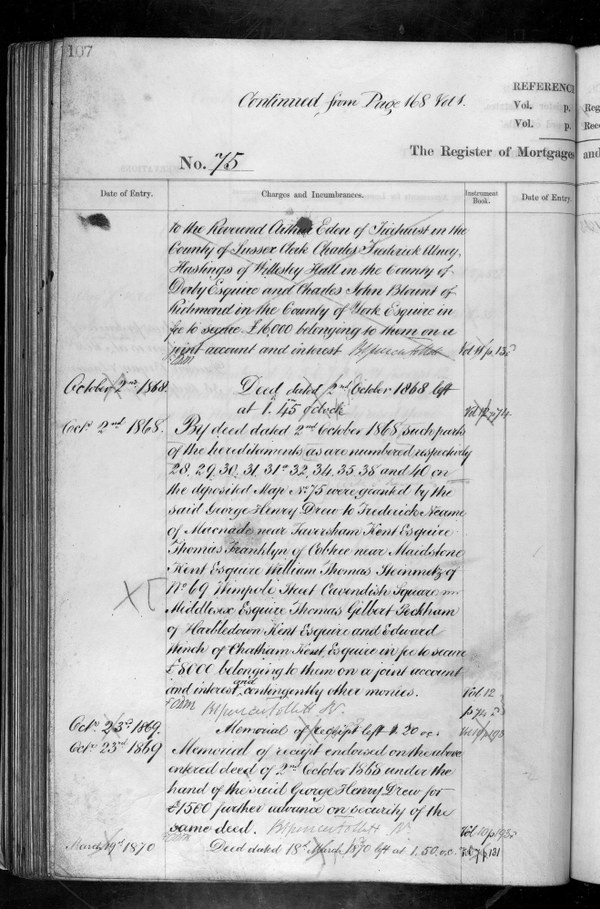 107
Continued from Page 168 Vol 1.
REFERENC
Vol. p.
Vol. p.
Reg
Rec
No. 75
The Register of Mortgages
and
Date of Entry.
Charges and Incumbrances.
Instrument Book.
Date of Entry.
to the Reverend Arthur Eden of Ticehurst in the
County of Sussex Clerk Charles Frederick Abney
Hastings of Willesley Hall in the County of
Derby Esquire and Charles John Blount of
Richmond in the County of York Esquire in
fee to secure £16,000 belonging to them on a
joint account and interest
Vol 11 p
October 2nd 1868.
Deed dated 2nd October 1868 left
at 1.45 o'clock
Vol 12 p 74
Octr. 2nd 1868.
By deed dated 2nd October 1868, such parts
of the hereditaments as are numbered respectively
28. 29. 30. 31. 31a 32. 34. 35. 38 and 40 on
the deposited Map No. 75 were granted by the
said George Henry Drew to Frederick Neame
of Macnade near Faversham Kent Esquire
Thomas Franklyn of near Maidstone
Kent Esquire William Thomas Steinmetz of
No 69 Wimpole Street Cavendish Square in
Middlesex Esquire Thomas Gilbert Peckham
of Harbledown Kent Esquire and Edward
Winch of Chatham Kent Esquire in fee to secure
£8000 belonging to them on a joint account
and interest and contingently other monies.
Vol 12
p 74
Octr. 23d. 1869.
Memorial of receipt left 1.30 o.c.
Vol 19 p 193
Octr. 23rd 1869
Memorial of receipt endorsed on the above
entered deed of 2nd October 1868 under the
hand of the said George Henry Drew for
£1500 further advance on security of the
same deed.
Vol 19 p 193
March 19th 1870
Deed dated 18th March 1870 left at 1.50. o.c.
p 131